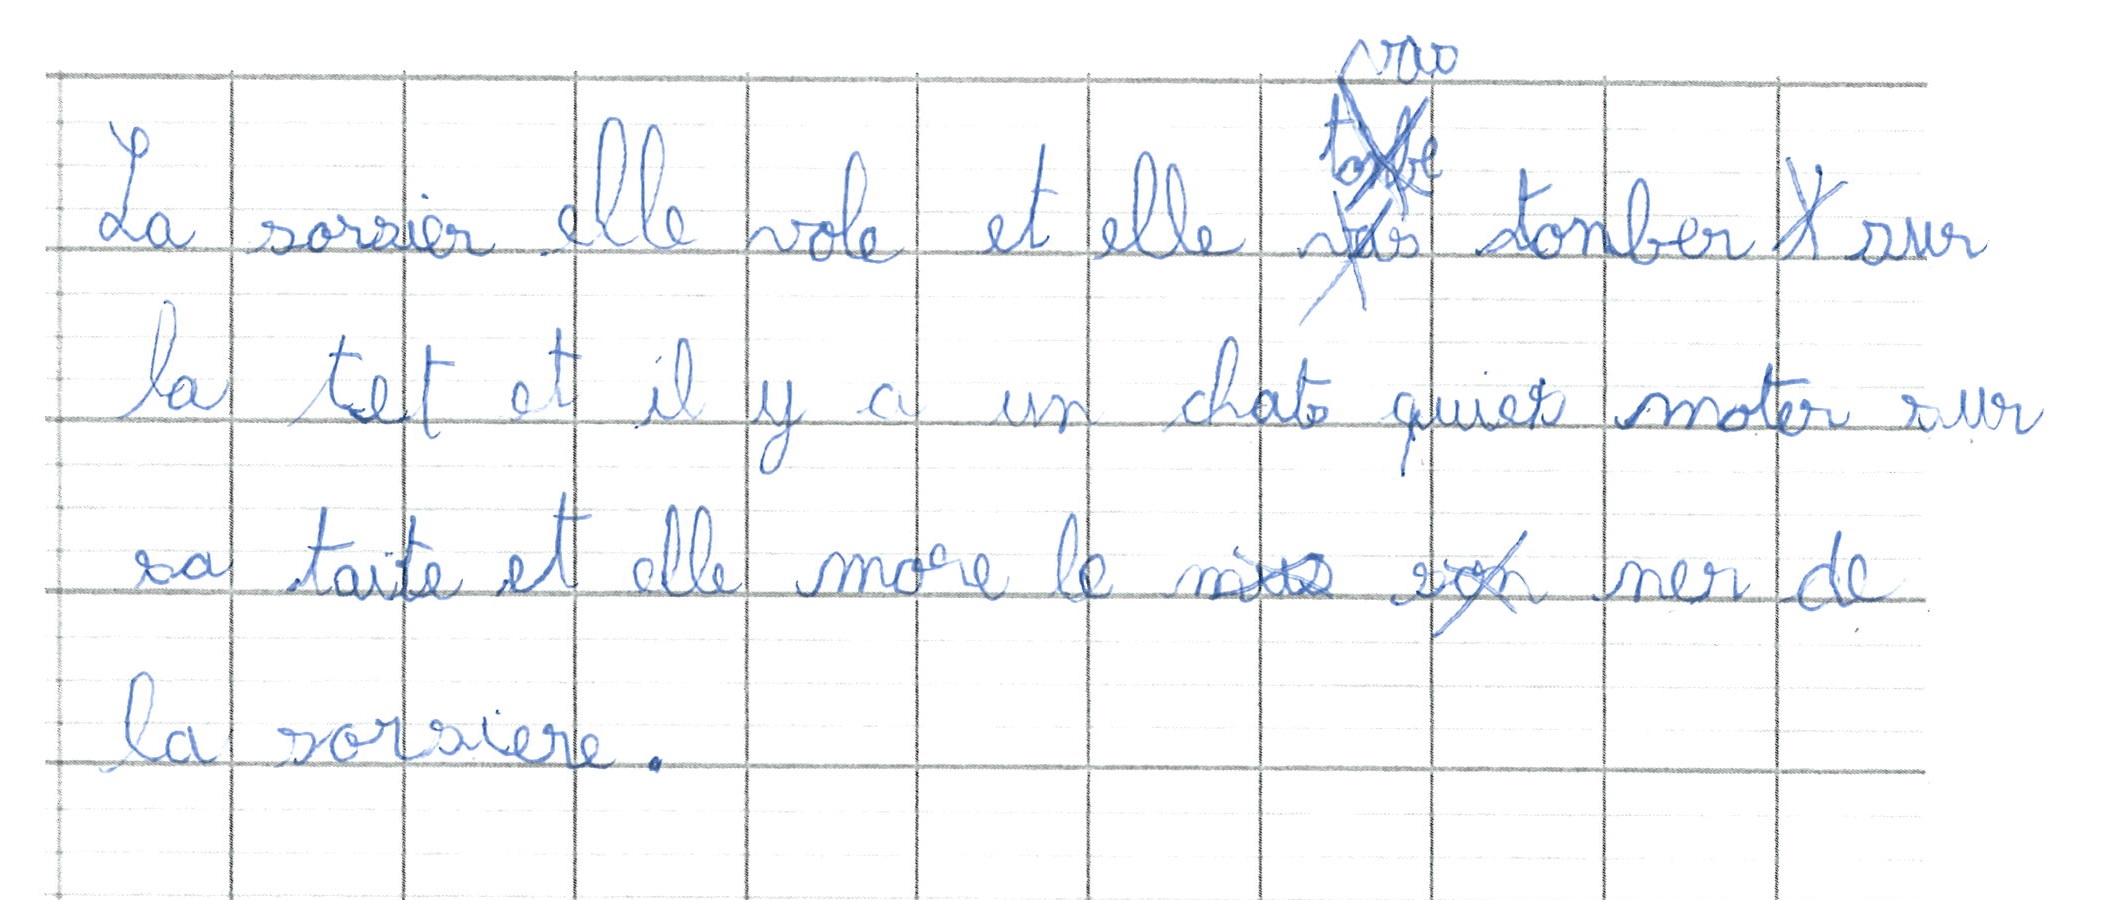 La sorsier elle vole et elle vas tomber sur
la tet et il y a un chats quiet moter sur
sa taite et elle more le ner de
la sorsiere.